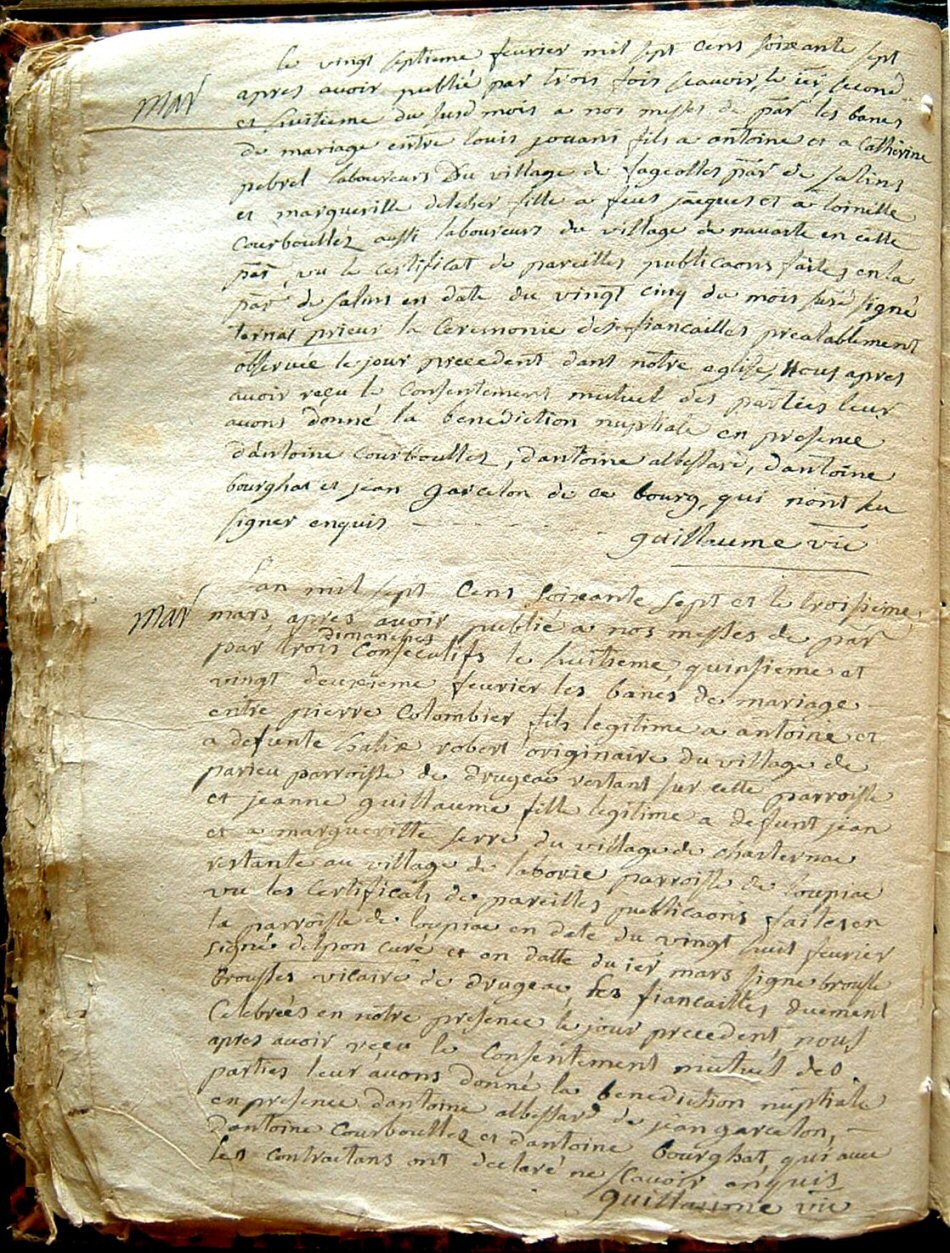 le vingt septieme fevrier mil sept cens soixante sept
mar
apres avoir publié par trois fois scavoir, le ier, second
et huitieme du susd mois a nos messes de par les bancs
de mariage entre louis jouans fils a antoine et a Catherine
pebrel laboureurs Du village de fageolles par de salins
et marguerite deleber fille a feus jacques et a toinette
Courboulles aussi laboureurs du village de navaste en cette
par, vu le certificat de pareilles publicaons faites en la
par de salins en date du vingt cinq du mois susd signé
ternat prieur la Ceremonie des fiancailles prealablement
observee le jour precedent dans nôtre eglise, Nous apres
avoir reçu le Consentement mutuel des parties leur
avons donné la benediction nuptiale en presence
d'antoine Courboulles, d'antoine albessard, d'antoine
bourghat et jean garcelon de ce bourg, qui n'ont su
signer enquis
guillaume vic
Lan mil sept Cens soixante sept et le troisieme
mar
mars, apres avoir publié a nos messes de par
par trois dimanches Consecutifs le huitieme, quinsieme et
vingt deuxieme fevrier les bancs de mariage
entre pierre Colombier fils legitime a antoine et
a defunte halix robert originaire du village de
parieu parroisse de drugeac restant sur cette parroisse
et jeanne guillaume fille legitime a defunt jean
et a marguerite serre du village de charternac
restante au village de laborie parroisse de loupiac
vu les Certificats de pareilles publicaons faites en
la parroisse de loupiac en date du vingt huit fevrier
signé delpon curé et en datte du ier mars signe brousse
Brousses vicaire de drugeac, les fiancailles duement
Celebrées en nôtre presence le jour precedent, nous
apres avoir reçeu le Consentement mutuel des
parties leur avons donné la benediction nuptiale
en presence d'antoine albessard de jean garcelon,
d'antoine Courboulles et d'antoine bourghat qui avec
les contractans ont declaré ne scavoir enquis
guillaume vic